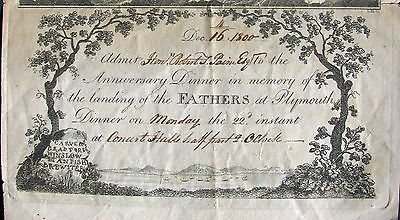 Dec. 16 1800
Admit Hon. Robert T. Paine Esq. to the
Anniversary Dinner in memory of
the landing of the FATHERS at Plymouth
Dinner on Monday the 22d instant
at Concert Hall half past 2 OClock
CARVER
BRADFORD
WINSLOW
STANDISH
BREWSTER